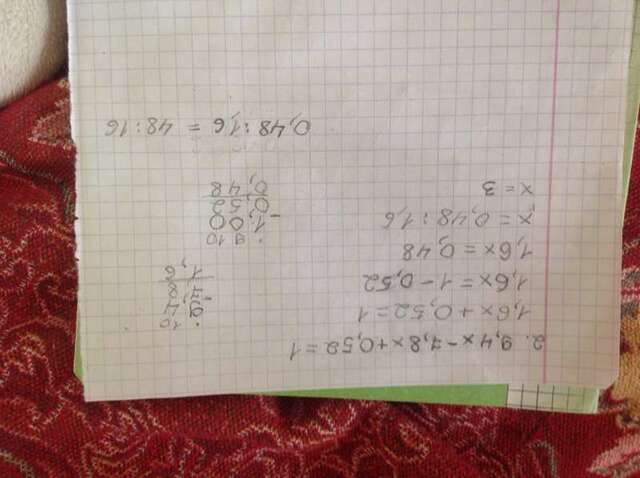 2. 9,4x-7,8x+0,52=1
1,6x+0,52=1
1,6x=1-0,52
1,6x=0,48
x=0,48:1,6
x=3
. 10
9,4
-
7,8
1,6
. 9 10
1,00
-
0,52
0,48
0,48:1,6 = 48:16